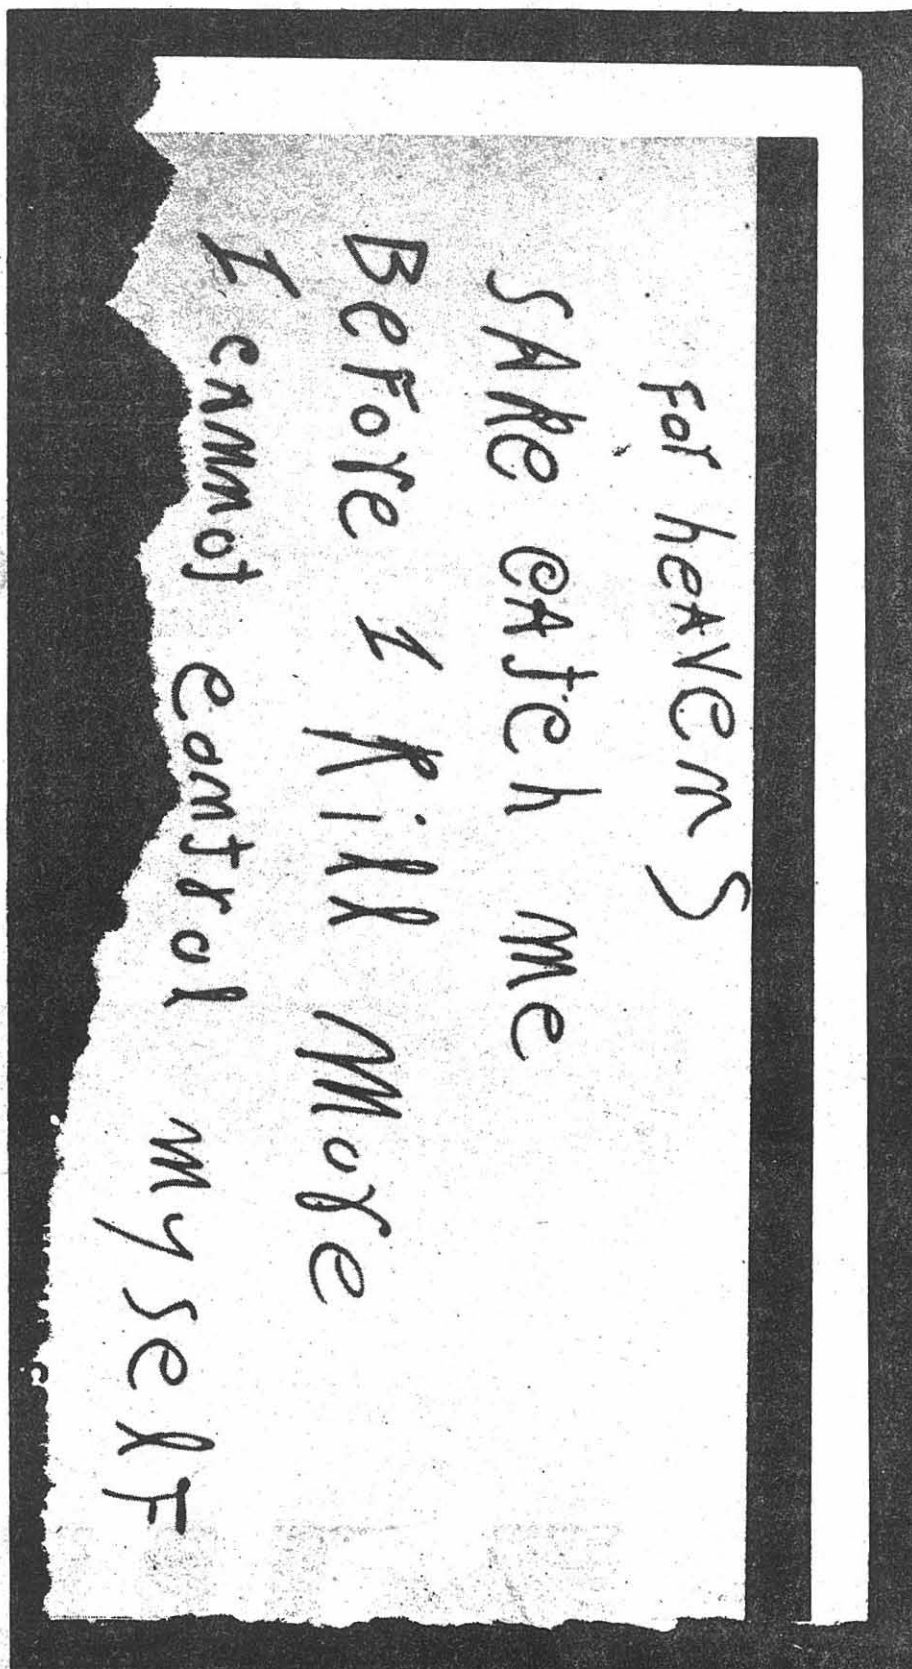 For heAVens
SAKe cATch me
BeFore I Kill More
I cAnnot control myselF